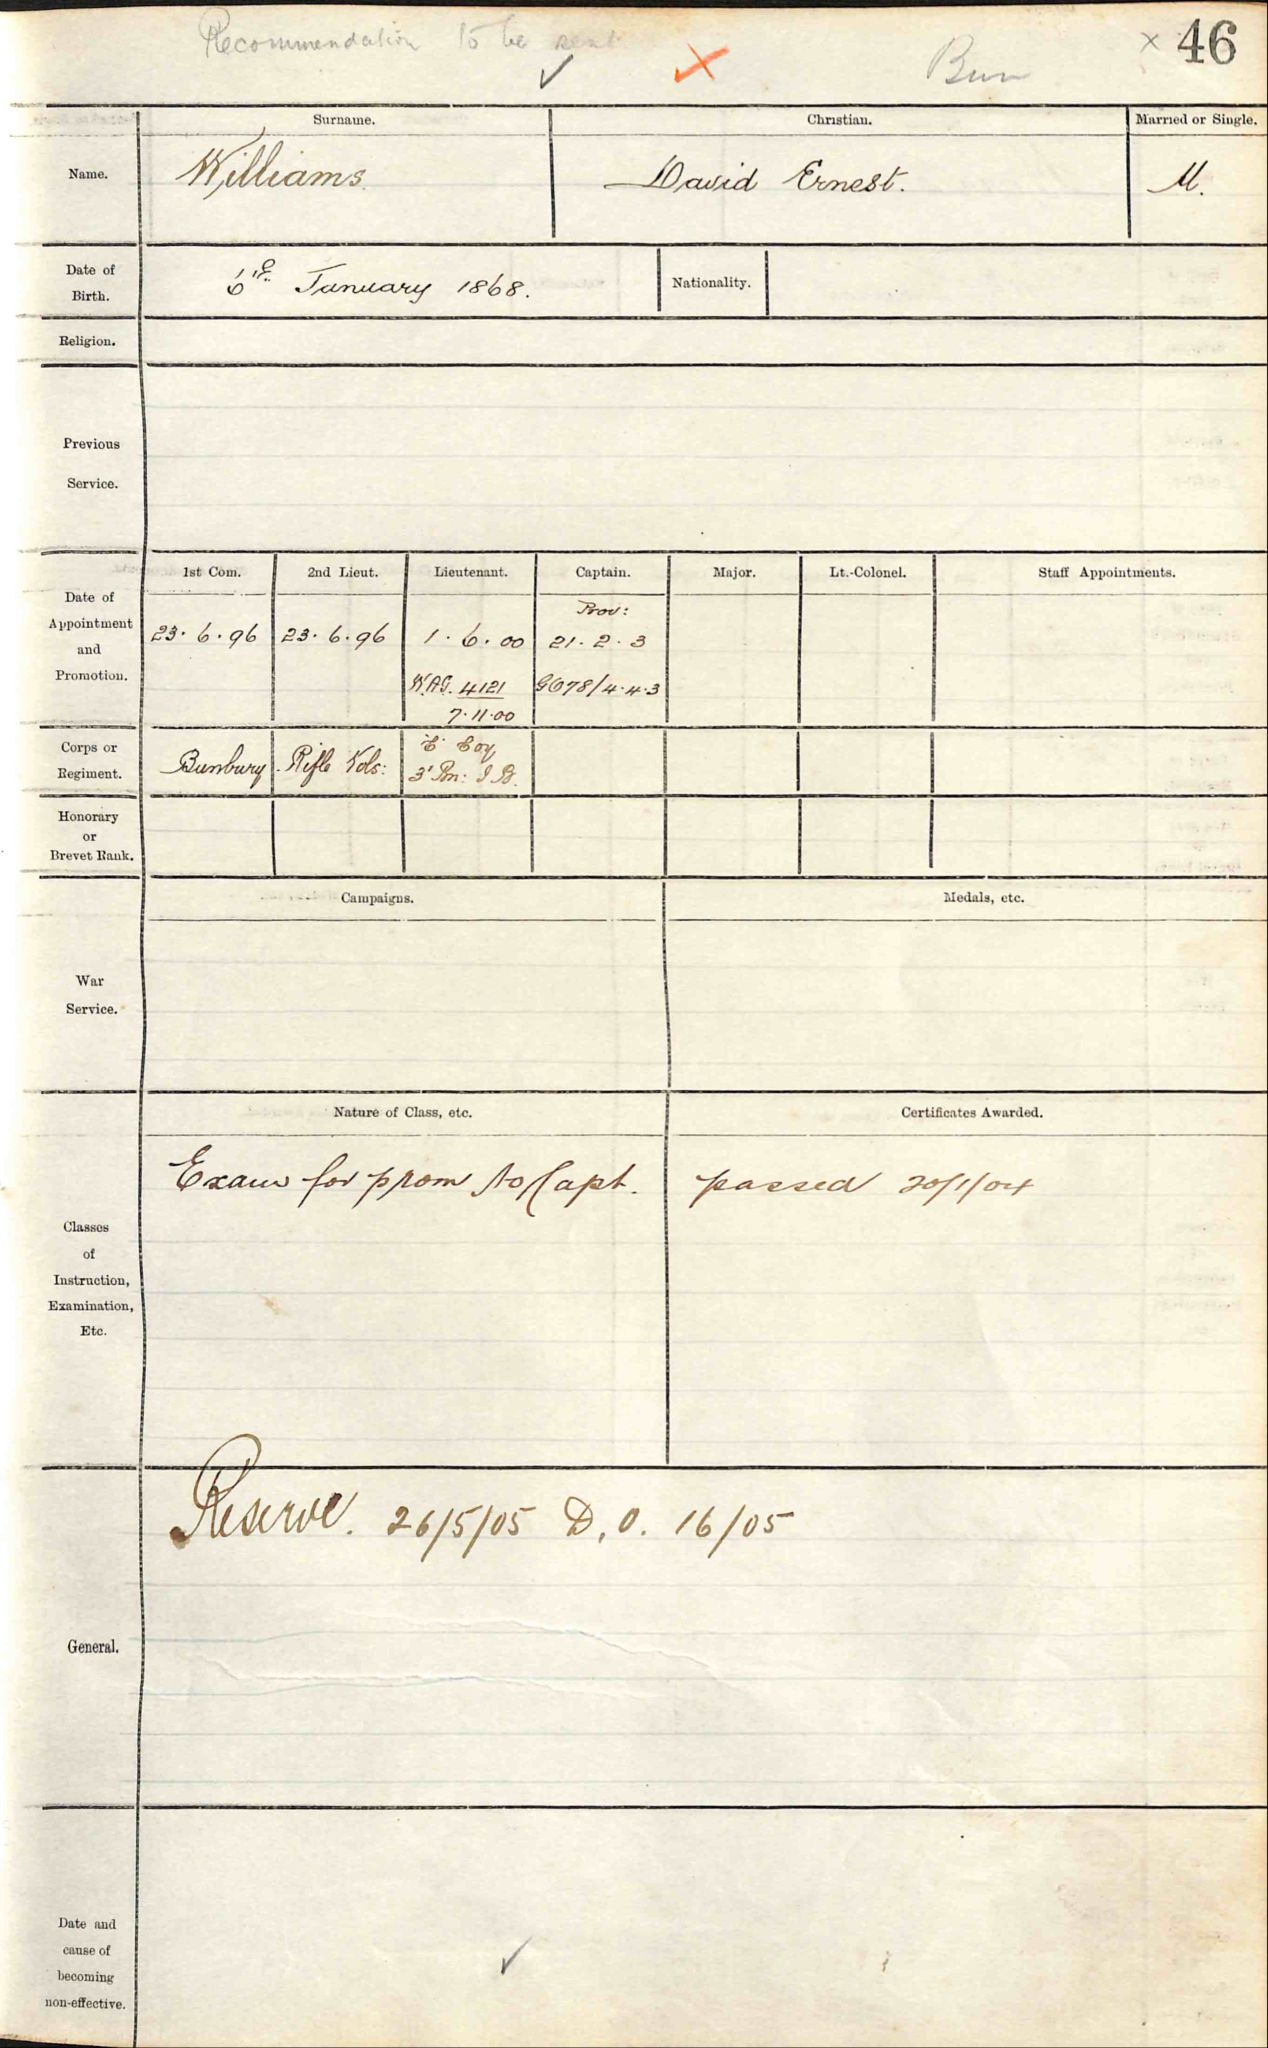 Recommendation to be sent
Bun
× 46
Surname. Christian. Married or Single.
Name. Williams. David Ernest. M.
Date of Birth. 6th January 1868. Nationality.
Religion.
Previous
Service.
1st Com. 2nd Lieut. Lieutenant. Captain. Major. Lt.-Colonel. Staff Appointments.
Date of
Appointment
and
Promotion.
Prov:
23.6.96 23.6.96 1.6.00 21.2.3
W.A.G. 4121 GO78/4.4.3
7.11.00
Corps or
Regiment.
Bunbury Rifle Vols: "E" Coy
3' Bn: I B.
Honorary
or
Brevet Rank.
Campaigns. Medals, etc.
War
Service.
Nature of Class, etc. Certificates Awarded.
Exam for prom to Capt. passed 20/1/04
Classes
of
Instruction,
Examination,
Etc.
Reserve. 26/5/05 D.O. 16/05
General.
Date and
cause of
becoming
non-effective.